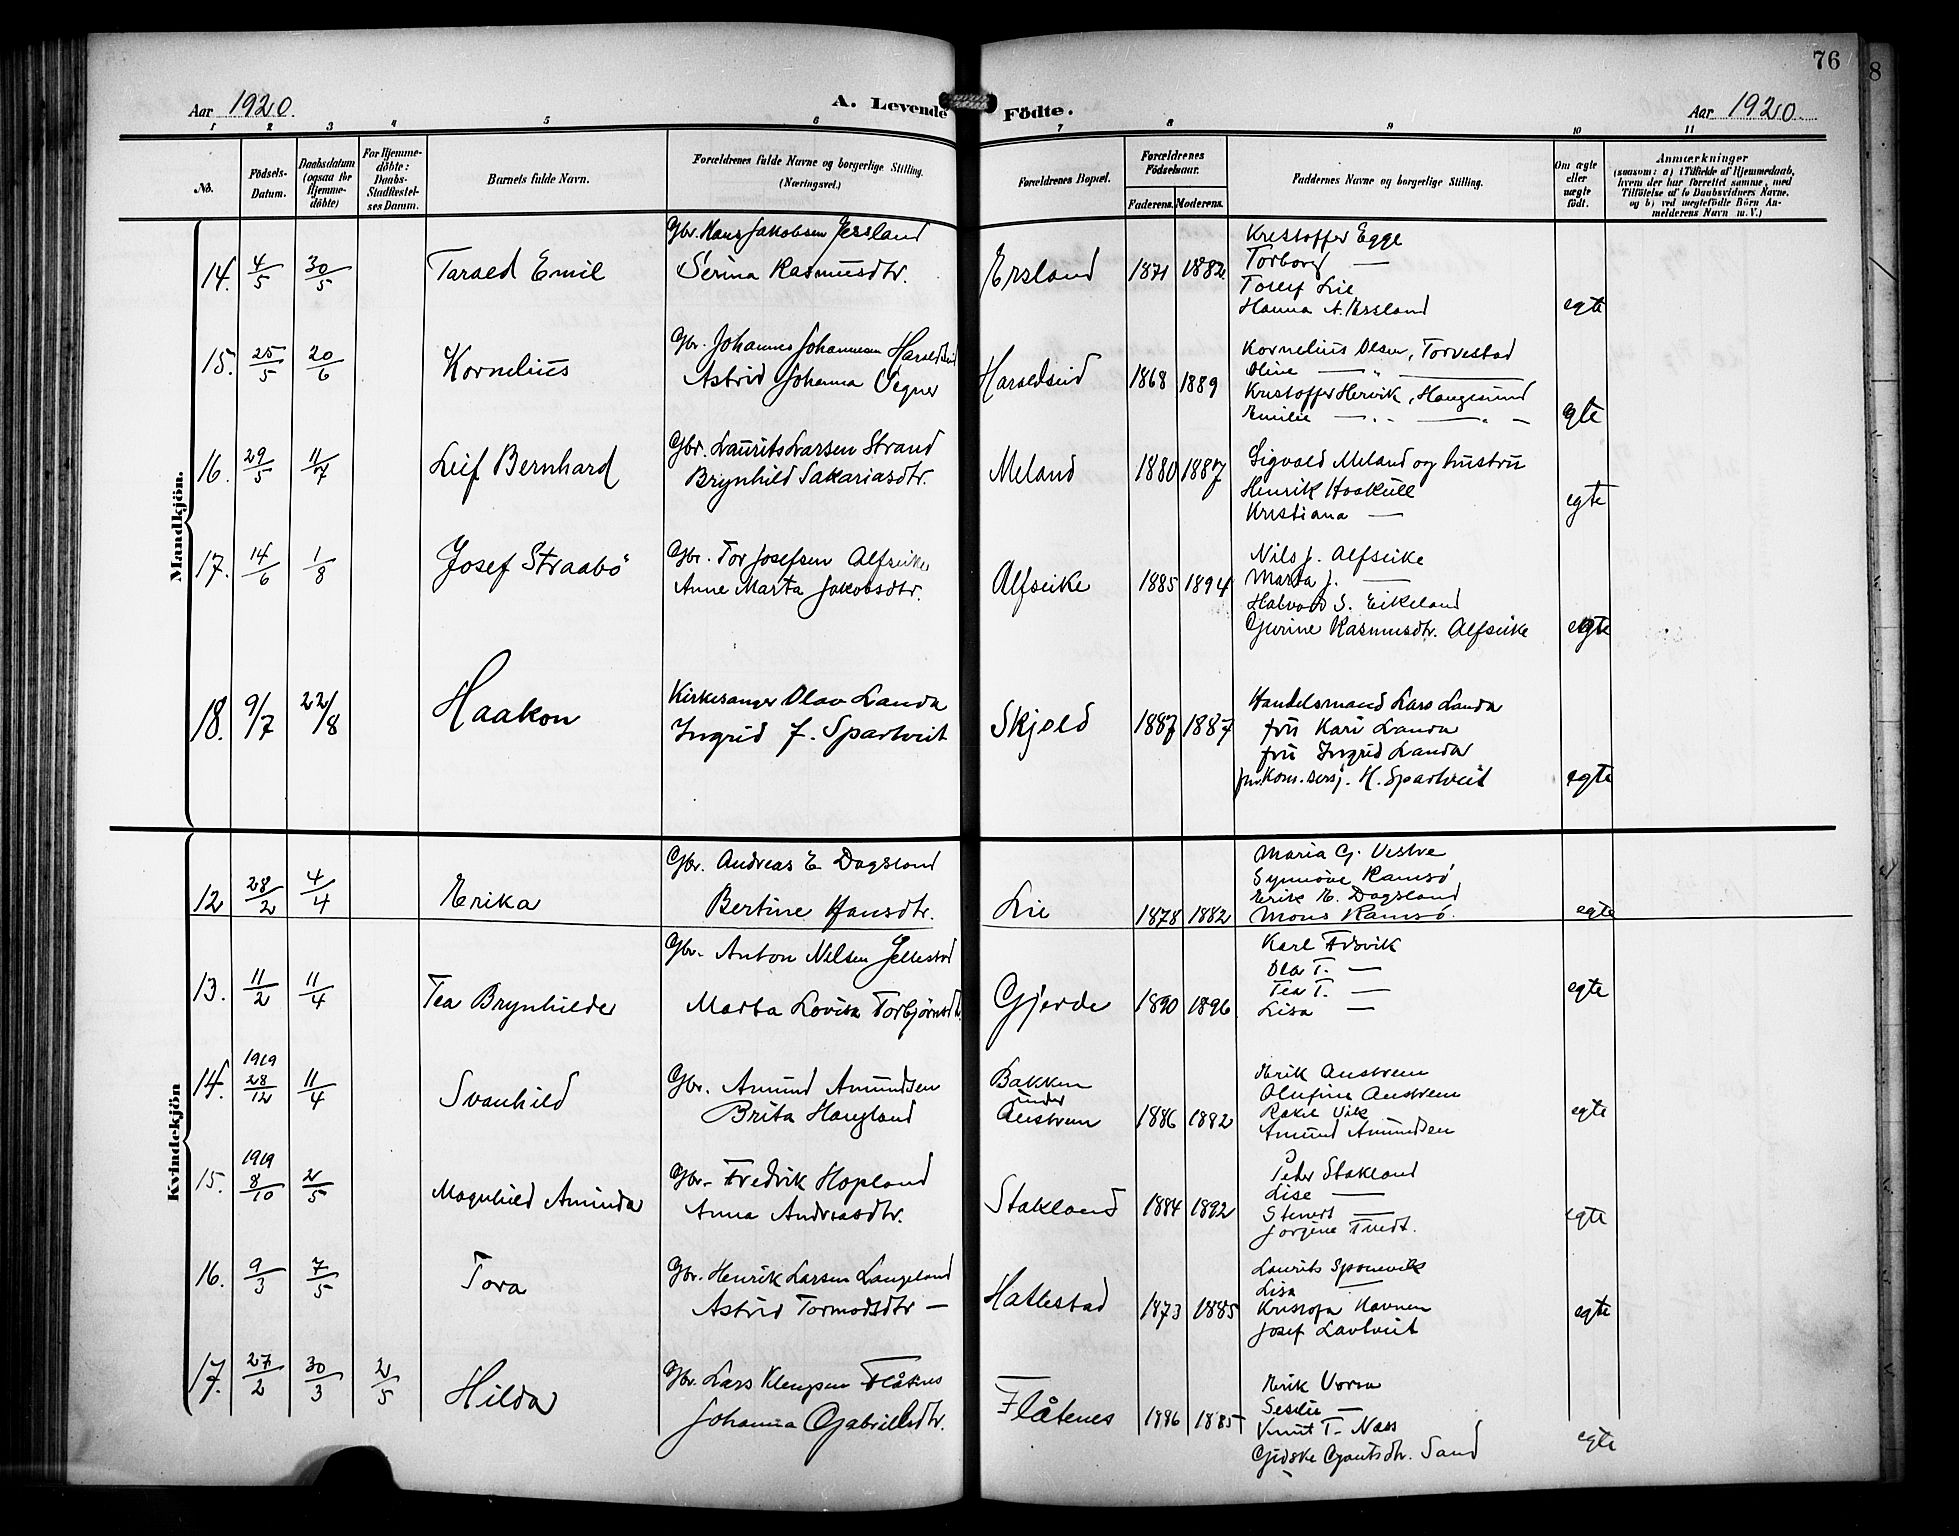 76
8
Aar 1920.
A. Levende Födte.
Aar 1920.
1 2 3 4 5 6 7 8 9 10 11
No.
Födsels-
Datum.
Daabsdatum
(ogsaa for
Hjemme-
döbte)
For Hjemme-
döbte:
Daabs-
Stadfestel-
ses Datum.
Barnets fulde Navn.
Forældrenes fulde Navne og borgerlige Stilling.
(Næringsvei.)
Forældrenes Bopæl.
Forældrenes
Födselsaar.
Faderens. Moderens.
Faddernes Navne og borgerlige Stilling.
Om ægte
eller
uægte
födt.
Anmærkninger
(saasom: a) i Tilfælde af Hjemmedaab,
hvem der har forrettet samme, med
Tilföielse af to Daabsvidners Navne.
og b) ved uegtefödte Börn An-
melderens Navn m. V.)
Mandkjön.
14. 4/5 30/5 Tarald Emil
Gbr. Hans Jakobsen Jersland
Serina Rasmusdtr.
Ersland 1871 1882
Kristoffer Egge
Torborg —
Tollef Lie
Hanna A. Ersland
egte
15. 25/5 20/6 Kornelius
Gbr. Johannes Johannesen Haraldseid
Astrid Johanna Vegner
Haraldseid 1868 1889
Kornelius Olsen, Torvestad
Oline — " —
Kristoffer Hervik, Haugesund
Emilie — " — " —
egte
16. 29/5 11/7 Leif Bernhard
Gbr. Laurits Larsen Strand
Brynhild Sakariasdtr.
Meland 1880 1887
Sigvald Meland og hustru
Henrik Haakull
Kristiana —
egte
17. 14/6 1/8 Josef Straabö
Gbr. Tor Josefsen Alfseike
Anne Marta Jakobsdtr.
Alfseike 1885 1894
Nils J. Alfseike
Marta J. —
Halvard S. Eikeland
Gurine Rasmusdtr. Alfseike
egte
18. 9/7 22/8 Haakon
Kirkesanger Olav Landa
Ingrid f. Spartveit
Skjold 1887 1887
Handelsmand Lars Landa
fru Kari Landa
fru Ingrid Landa
H. Spartveit
egte
Kvindekjön
12 28/2 4/4 Erika
Gbr. Andreas E. Dagsland
Bertine Hansdtr.
Lie 1878 1882
Maria G. Vestre
Synnöve Ramsö
Erik E. Dagsland
Mons Ramsö.
egte
13. 11/2 11/4 Tea Brynhilde
Gbr. Anton Nilsen Jellestad
Marta Lovisa Torbjörnsdtr.
Gjerde 1890 1896
Karl Edsvik
Ola T. —
Tea T. —
Lisa —
egte
14. 1919 28/12 11/4 Svanhild
Gbr. Amund Amundsen
Brita Haugland
Bakken
under
Austrem 1886 1882
Erik Austrem
Olufine Austrem
Rakel Vik
Amund Amundsen
egte
15. 1919 8/10 2/5 Magnhild Aminda
Gbr. Fredrik Hopland
Anna Andreasdtr.
Stakland 1884 1892
Peder Stakland
Lise —
—
Jorgine Tvedt.
egte
16. 9/3 7/5 Tora
Gbr. Henrik Larsen Langeland
Astrid Tormodsdtr —
Hallestad 1873 1885
Laurits Sponevik
Lisa —
Kristofa Havnen
Josef Lavtveit
egte
17. 27/2 30/3 2/5 Hilda
Gbr. Lars Flåtnes
Johanna Gabrielsdtr.
Flåtenes 1896 1885
Erik Vorra
—
Knut T. Næss
Gjidske Gautsdtr. Sand
egte